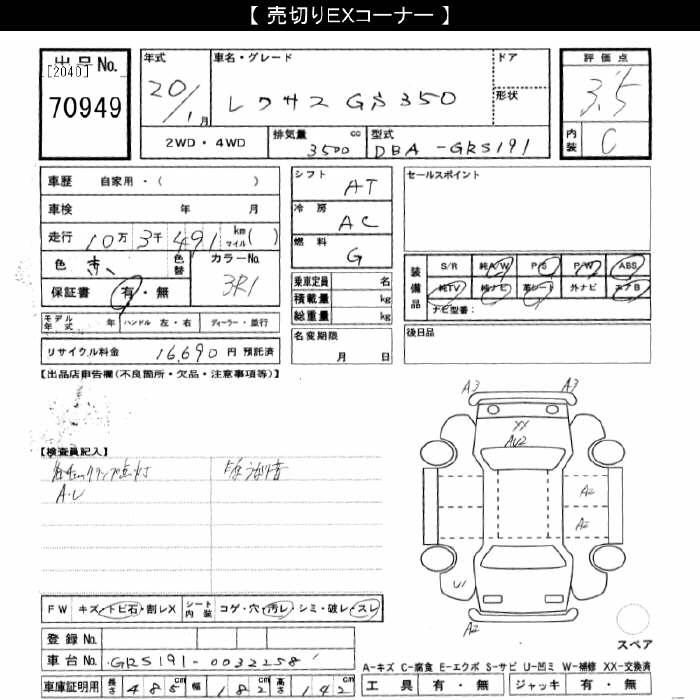 【 売切りEXコーナー 】
出品No.
[2040]
70949
年式
20/1月
車名・グレード
レクサス GS350
ドア
形状
評価点
3.5
内装 C
2WD・4WD
排気量 3500 cc
型式 DBA-GRS191
車歴 自家用・( )
車検 年 月
走行 10万3千491 km マイル( )
色 赤 色替 カラーNo. 3R1
保証書 有・無
モデル年式 年 ハンドル 左・右 ディーラー・並行
リサイクル料金 16,690 円 預託済
シフト AT
冷房 AC
燃料 G
乗車定員 名
積載量 kg
総重量 kg
名変期限 月 日
セールスポイント
装備品
S/R 純A/W P/S P/W ABS
純TV 純ナビ 革シート 外ナビ エアB
ナビ型番:
後日品
【出品店申告欄(不良箇所・欠品・注意事項等)】
【検査員記入】
A.U
A3 A3
XX
AU2
A2
A2
U1
A2
スペア
FW キズ・トビ石・割レX シート内装 コゲ・穴・汚レ・シミ・破レ・スレ
登録No.
車台No. GRS191-0032258
車庫証明用 長さ 485cm 幅 182cm 高さ 142cm
A-キズ C-腐食 E-エクボ S-サビ U-凹ミ W-補修 XX-交換済
工具 有・無 ジャッキ 有・無